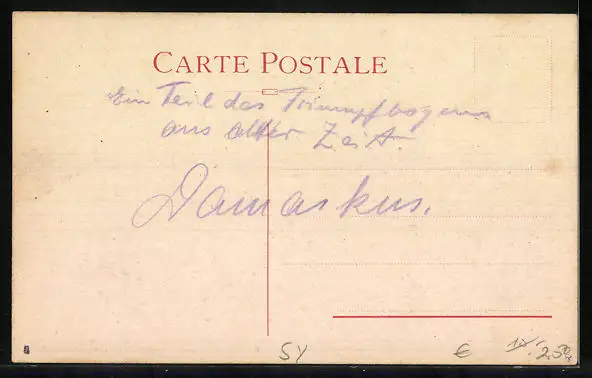 CARTE POSTALE
Ein Teil des Triumpfbogens
aus alter Zeit.
Damaskus.
SY
€ 2.50